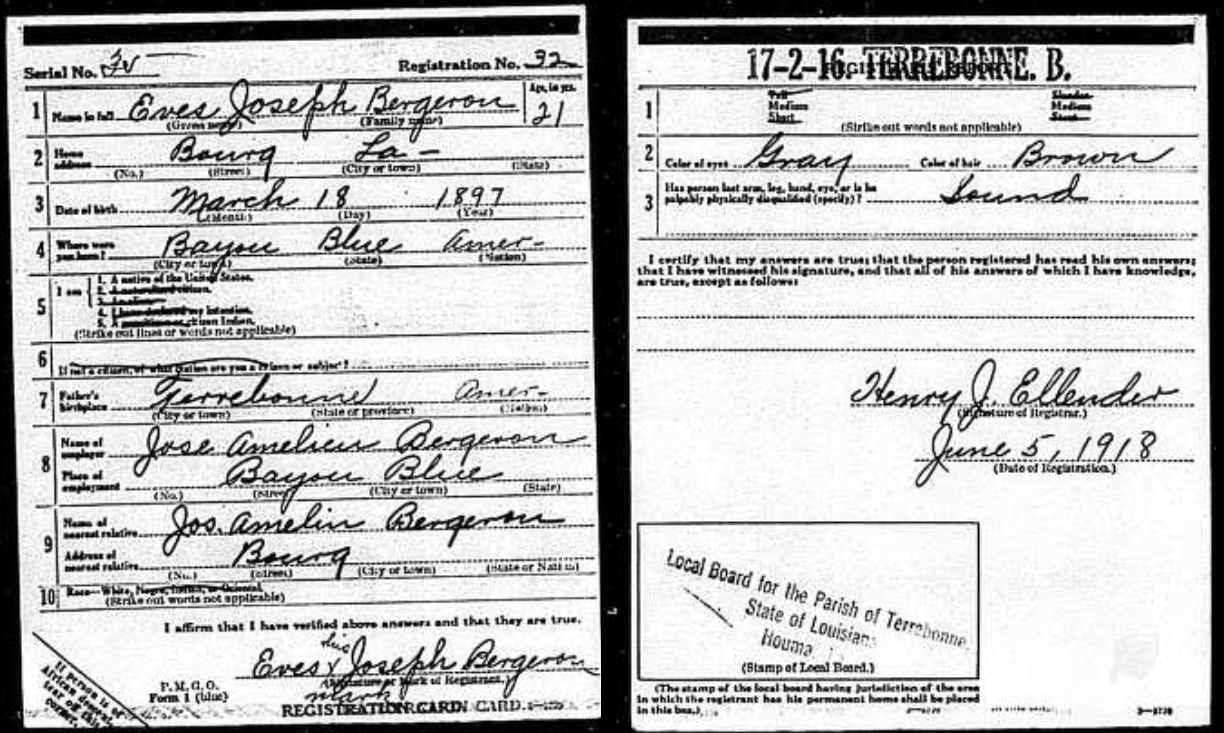 Serial No. Registration No. 32
1 Name in full Eves Joseph Bergeron Age, in yrs. 21
(Given name) (Family name)
2 Home address Bourg La -
(No.) (Street) (City or town) (State)
3 Date of birth March 18 1897
(Month) (Day) (Year)
4 Where were you born? Bayou Blue Amer-
(City or town) (State) (Nation)
5 I am
1. A native of the United States.
2. A naturalized citizen.
3. An alien.
4. I have declared my intention.
5. A citizen Indian.
(Strike out lines or words not applicable)
6 If not a citizen, of what nation are you a citizen or subject?
7 Father's birthplace Terrebonne Amer-
(City or town) (State or province) (Nation)
8 Name of employer Jose Amelien Bergeron
Place of employment Bayou Blue
(No.) (Street) (City or town) (State)
9 Name of nearest relative Jos. Amelin Bergeron
Address of nearest relative Bourg
(No.) (Street) (City or town) (State or Nation)
10 Race—White, Negro, Indian, or Oriental.
(Strike out words not applicable)
I affirm that I have verified above answers and that they are true.
his
Eves x Joseph Bergeron
(Signature or Mark of Registrant.)
mark
P. M. G. O.
Form 1 (blue)
REGISTRATION CARD. CARD.
If person is of
African descent,
tear off this
corner.
17-2-16. TERREBONNE. B.
1 Tall Slender
Medium Medium
Short Stout
(Strike out words not applicable)
2 Color of eyes Gray Color of hair Brown
3 Has person lost arm, leg, hand, eye, or is he
palpably physically disqualified (specify)? Sound
I certify that my answers are true; that the person registered has read his own answers;
that I have witnessed his signature, and that all of his answers of which I have knowledge,
are true, except as follows:
Henry J. Ellender
(Signature of Registrar.)
June 5, 1918
(Date of Registration.)
Local Board for the Parish of Terrebonne,
State of Louisiana
Houma
(Stamp of Local Board.)
(The stamp of the local board having jurisdiction of the area
in which the registrant has his permanent home shall be placed
in this box.)